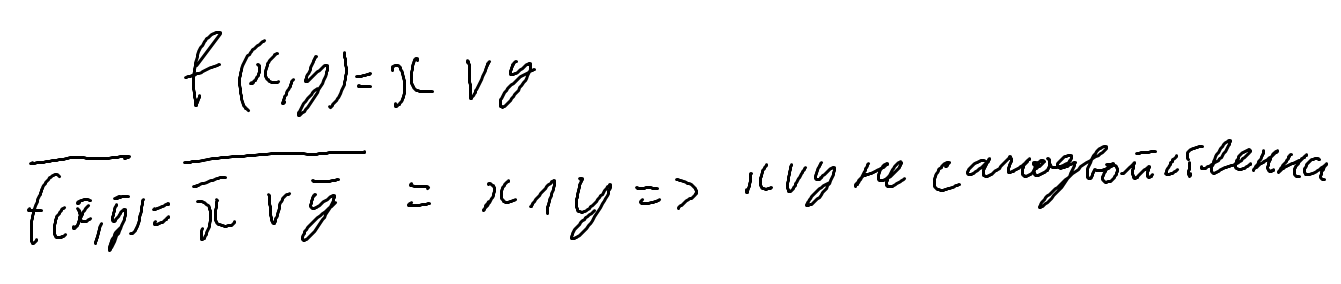 f(x,y)=x ∨ y
f̅(̅x̅,̅y̅)̅ = \overline{x̄ ∨ ȳ} = x ∧ y => x∨y не самодвойственна